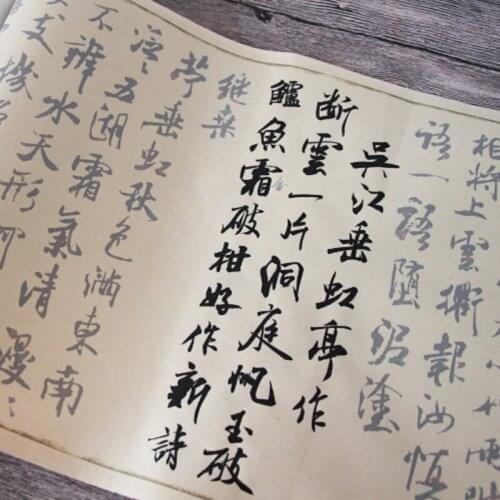 相將上雲衢報汝
語一語墮泥塗
吳江垂虹亭作
断雲一片洞庭帆玉破
鱸魚霜破柑好作新詩
継桑
苧垂虹秋色滿東南
泛〻五湖霜氣清漫〻
不辨水天形何
支機